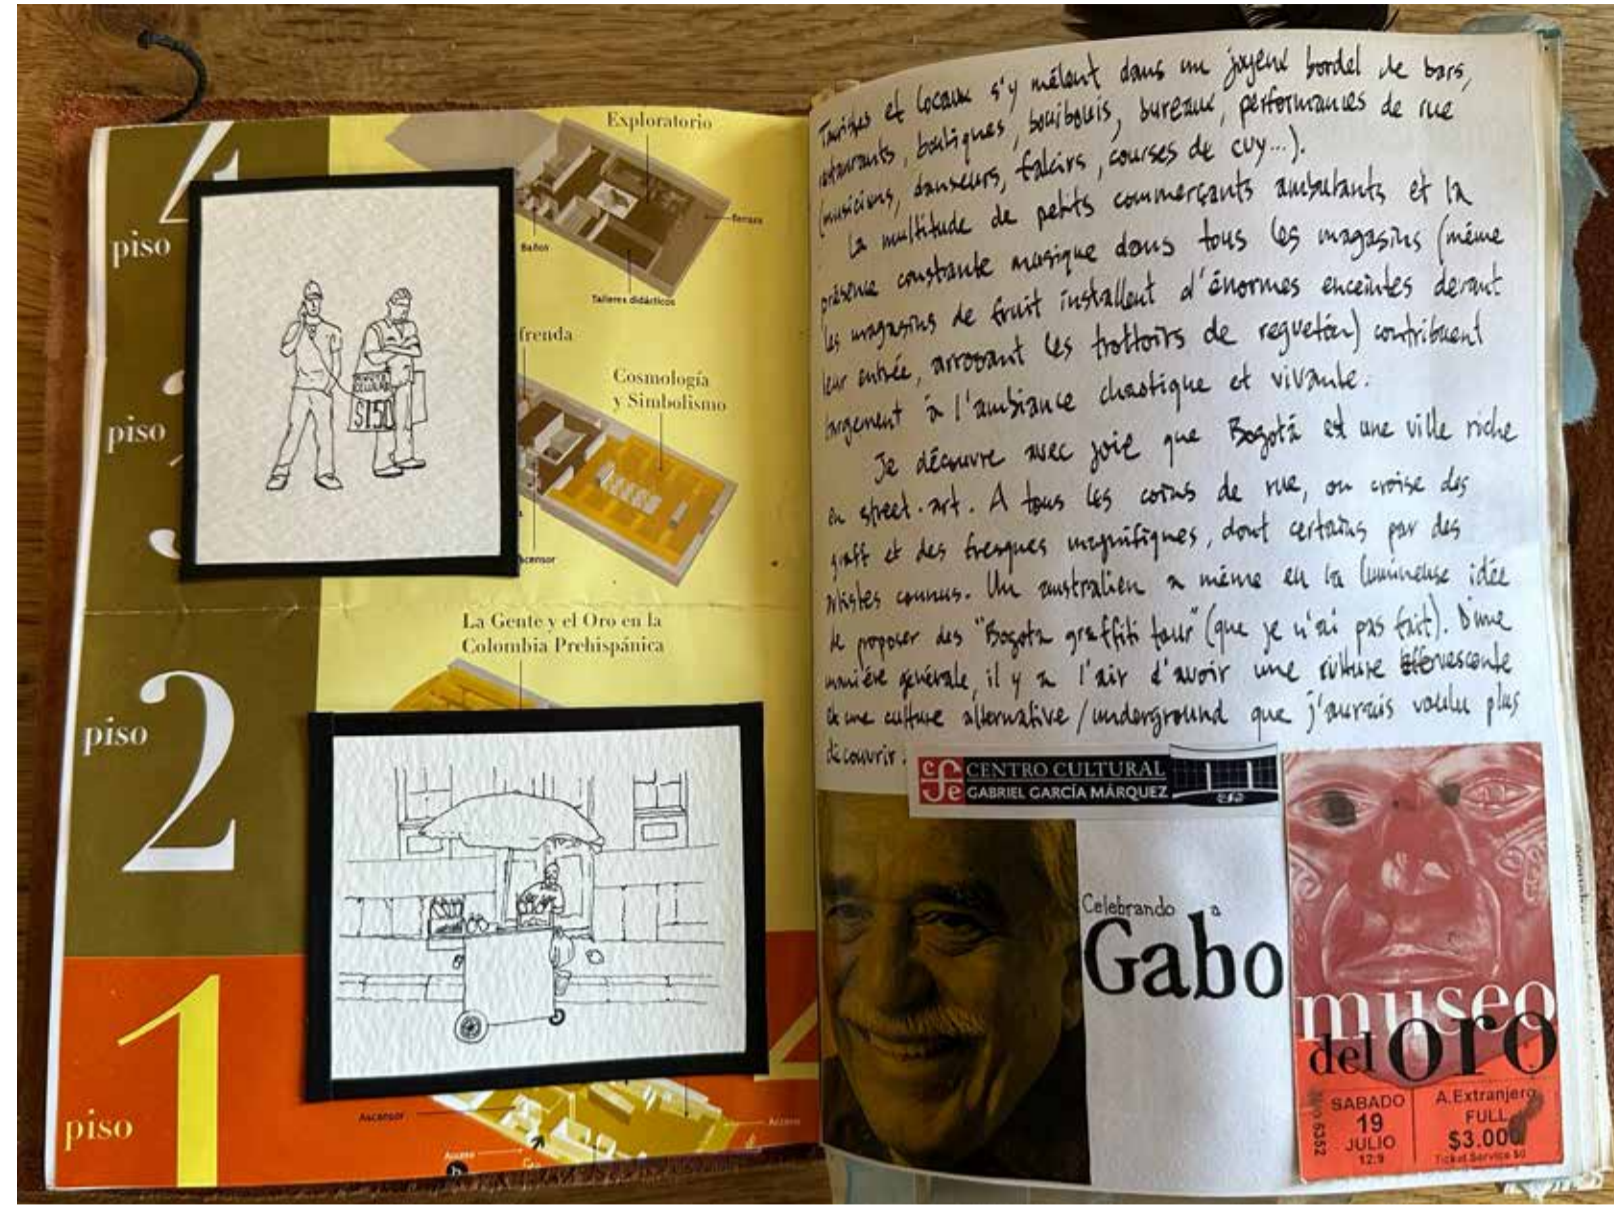 4
piso
Exploratorio
Terraza
Baños
Talleres didácticos
frenda
Cosmología
y Simbolismo
piso
3
scensor
MINUTO
CELULAR
$150
La Gente y el Oro en la
Colombia Prehispánica
piso
2
1
piso
Ascensor
Acceso
Acceso
Touristes et locaux s'y mêlent dans un joyeux bordel de bars,
restaurants, boutiques, bouibouis, bureaux, performances de rue
(musiciens, danseurs, fakirs, courses de cuy...).
La multitude de petits commerçants ambulants et la
présence constante musique dans tous les magasins (même
les magasins de fruit installent d'énormes enceintes devant
leur entrée, arrosant les trottoirs de reguetón) contribuent
largement à l'ambiance chaotique et vivante.
Je découvre avec joie que Bogotá est une ville riche
en street-art. A tous les coins de rue, on croise des
graff et des fresques magnifiques, dont certains par des
artistes connus. Un australien a même eu la lumineuse idée
de proposer des "Bogota graffiti tour" (que je n'ai pas fait). D'une
manière générale, il y a l'air d'avoir une culture effervescente
et une culture alternative/underground que j'aurais voulu plus
découvrir.
cfe CENTRO CULTURAL
GABRIEL GARCÍA MÁRQUEZ
Celebrando a
Gabo
museo
del oro
Nro 6352
SABADO
19
JULIO
12:9
A.Extranjero
FULL
$3.000
Ticket Service $0